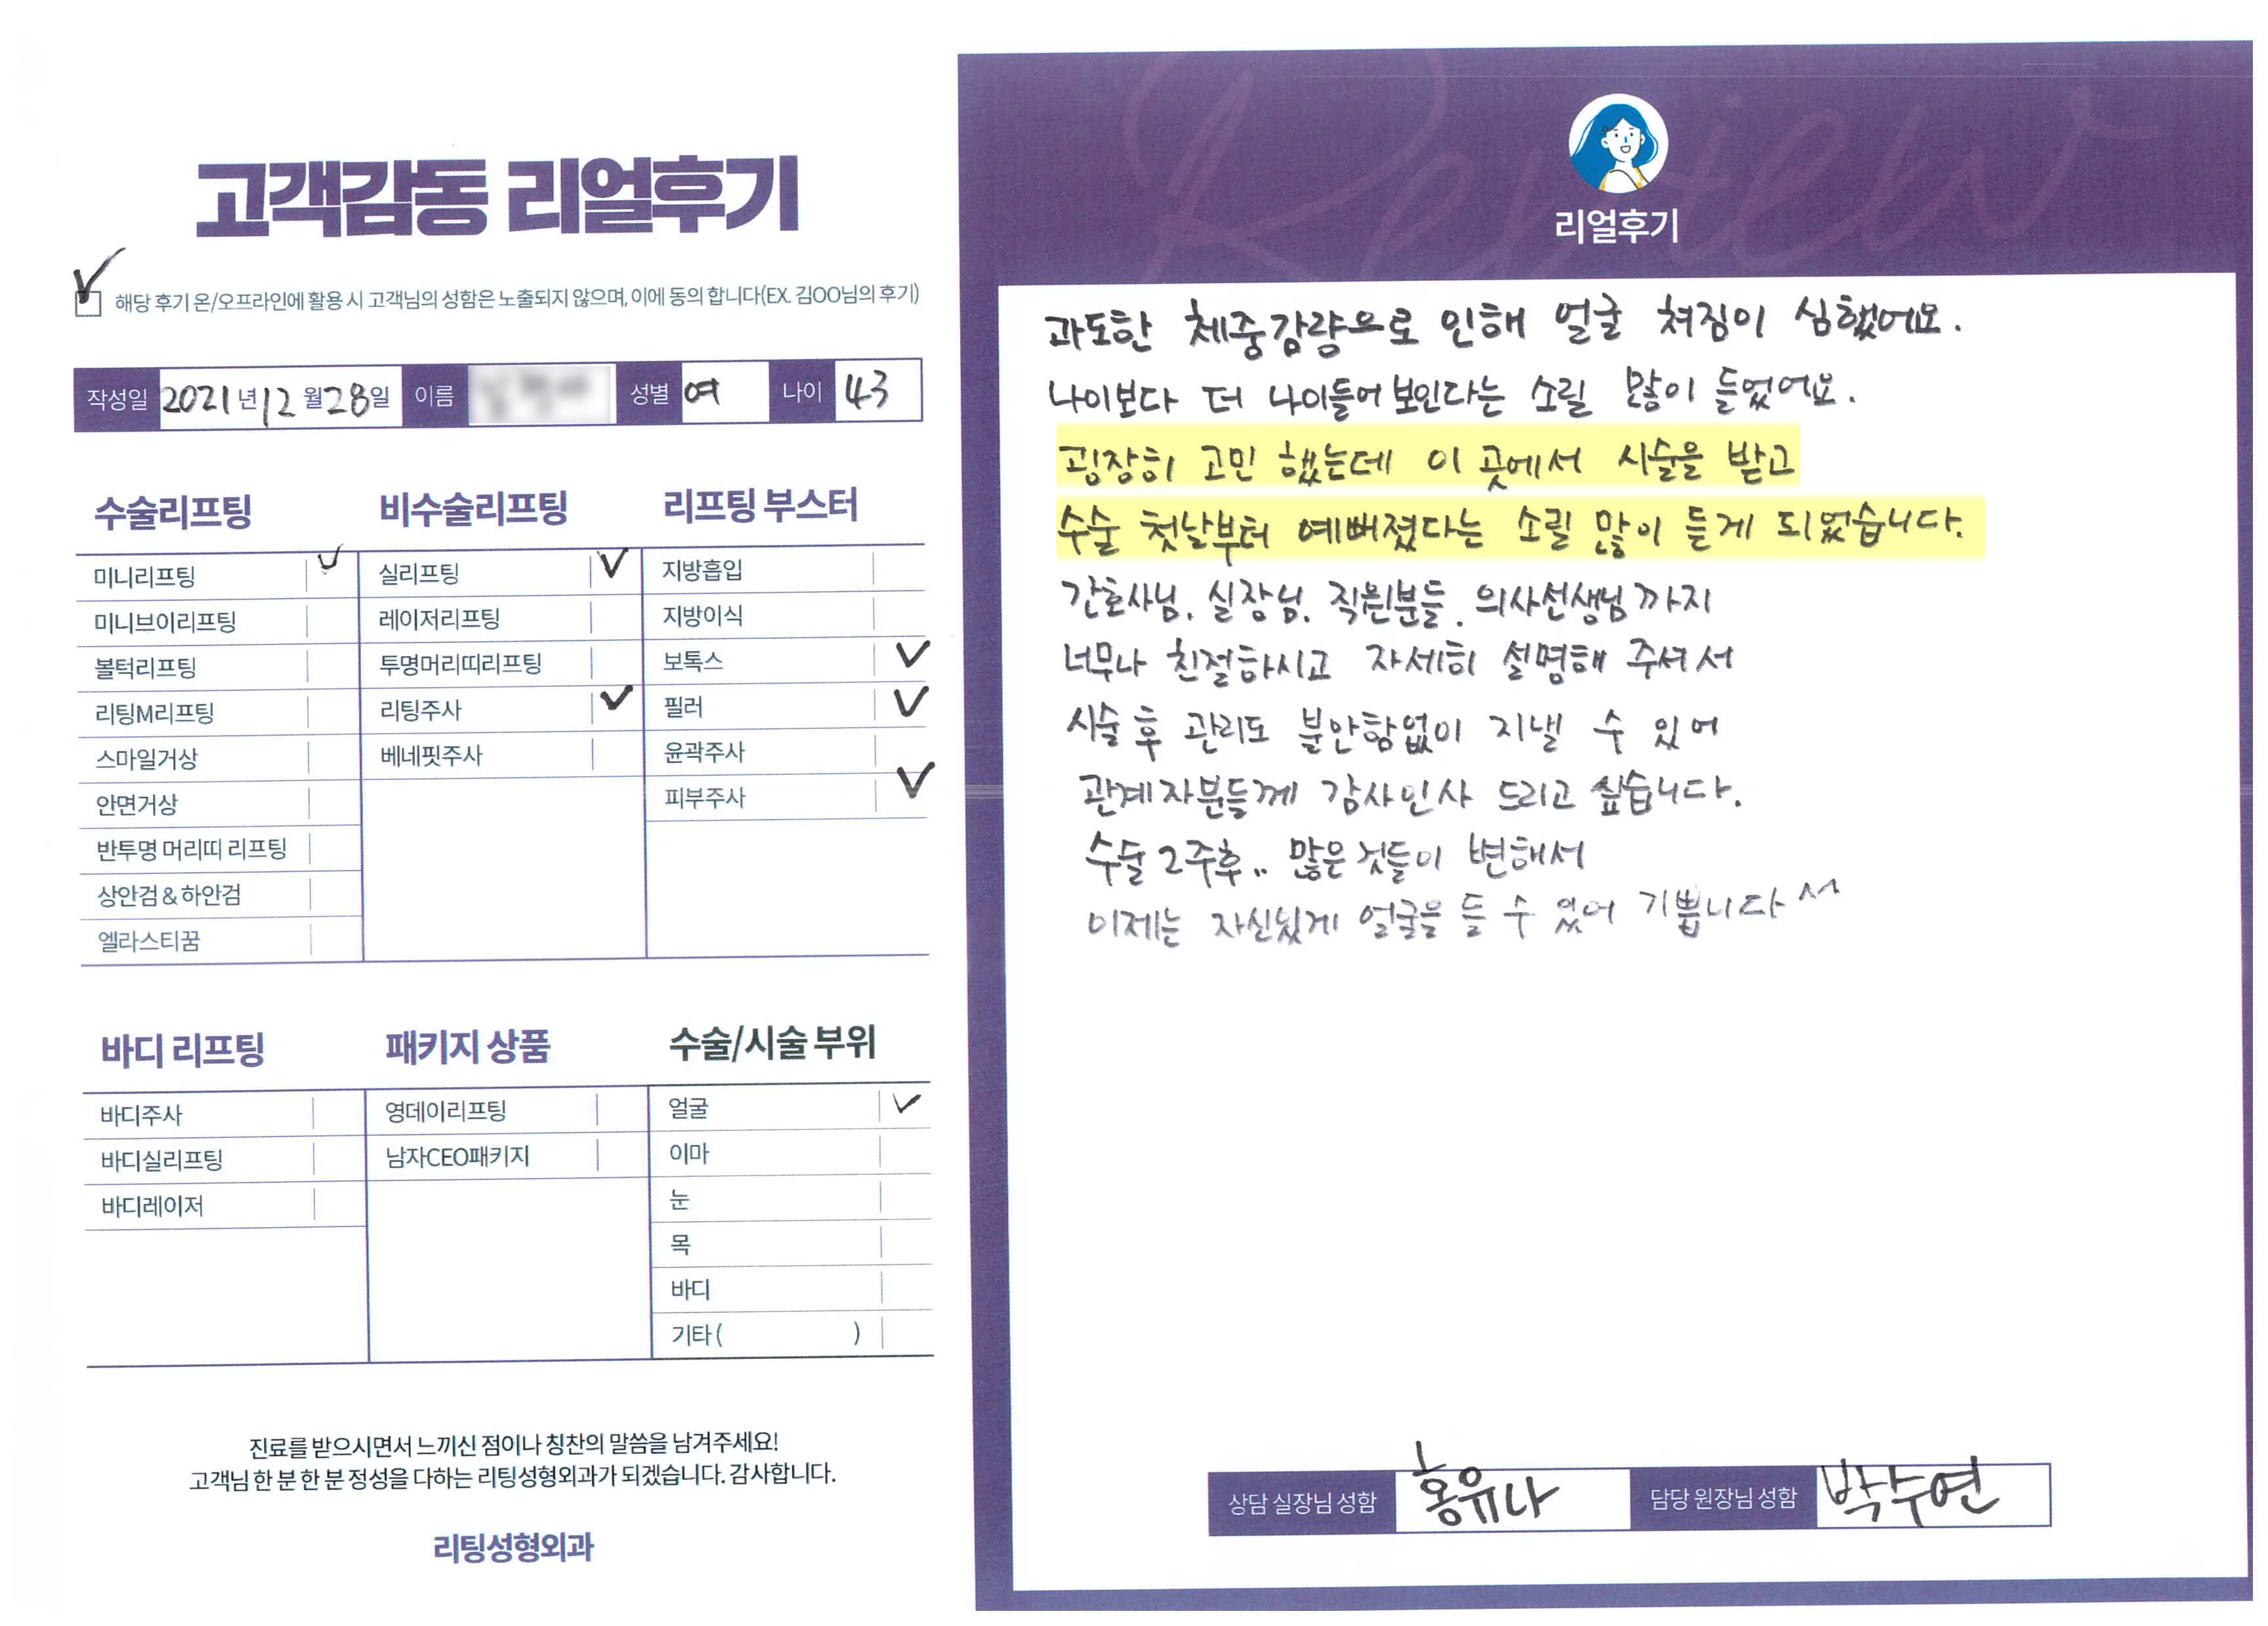 고객감동 리얼후기
해당 후기 온/오프라인에 활용 시 고객님의 성함은 노출되지 않으며, 이에 동의 합니다(EX. 김OO님의 후기)
작성일 2021년 12월 28일 이름 성별 여 나이 43
수술리프팅
미니리프팅
미니브이리프팅
볼턱리프팅
리팅M리프팅
스마일거상
안면거상
반투명 머리띠 리프팅
상안검 & 하안검
엘라스티꿈
비수술리프팅
실리프팅
레이저리프팅
투명머리띠리프팅
리팅주사
베네핏주사
리프팅 부스터
지방흡입
지방이식
보톡스
필러
윤곽주사
피부주사
바디 리프팅
바디주사
바디실리프팅
바디레이저
패키지 상품
영데이리프팅
남자CEO패키지
수술/시술 부위
얼굴
이마
눈
목
바디
기타 ( )
진료를 받으시면서 느끼신 점이나 칭찬의 말씀을 남겨주세요!
고객님 한 분 한 분 정성을 다하는 리팅성형외과가 되겠습니다. 감사합니다.
리팅성형외과
Review
리얼후기
과도한 체중감량으로 인해 얼굴 쳐짐이 심했어요.
나이보다 더 나이들어 보인다는 소릴 많이 들었어요.
굉장히 고민 했는데 이 곳에서 시술을 받고
수술 첫날부터 예뻐졌다는 소릴 많이 듣게 되었습니다.
간호사님, 실장님, 직원분들, 의사선생님까지
너무나 친절하시고 자세히 설명해 주셔서
시술 후 관리도 불안함없이 지낼 수 있어
관계자분들께 감사인사 드리고 싶습니다.
수술 2주후.. 많은 것들이 변해서
이제는 자신있게 얼굴을 들 수 있어 기쁩니다 ^^
상담 실장님 성함 홍유나 담당 원장님 성함 박수연